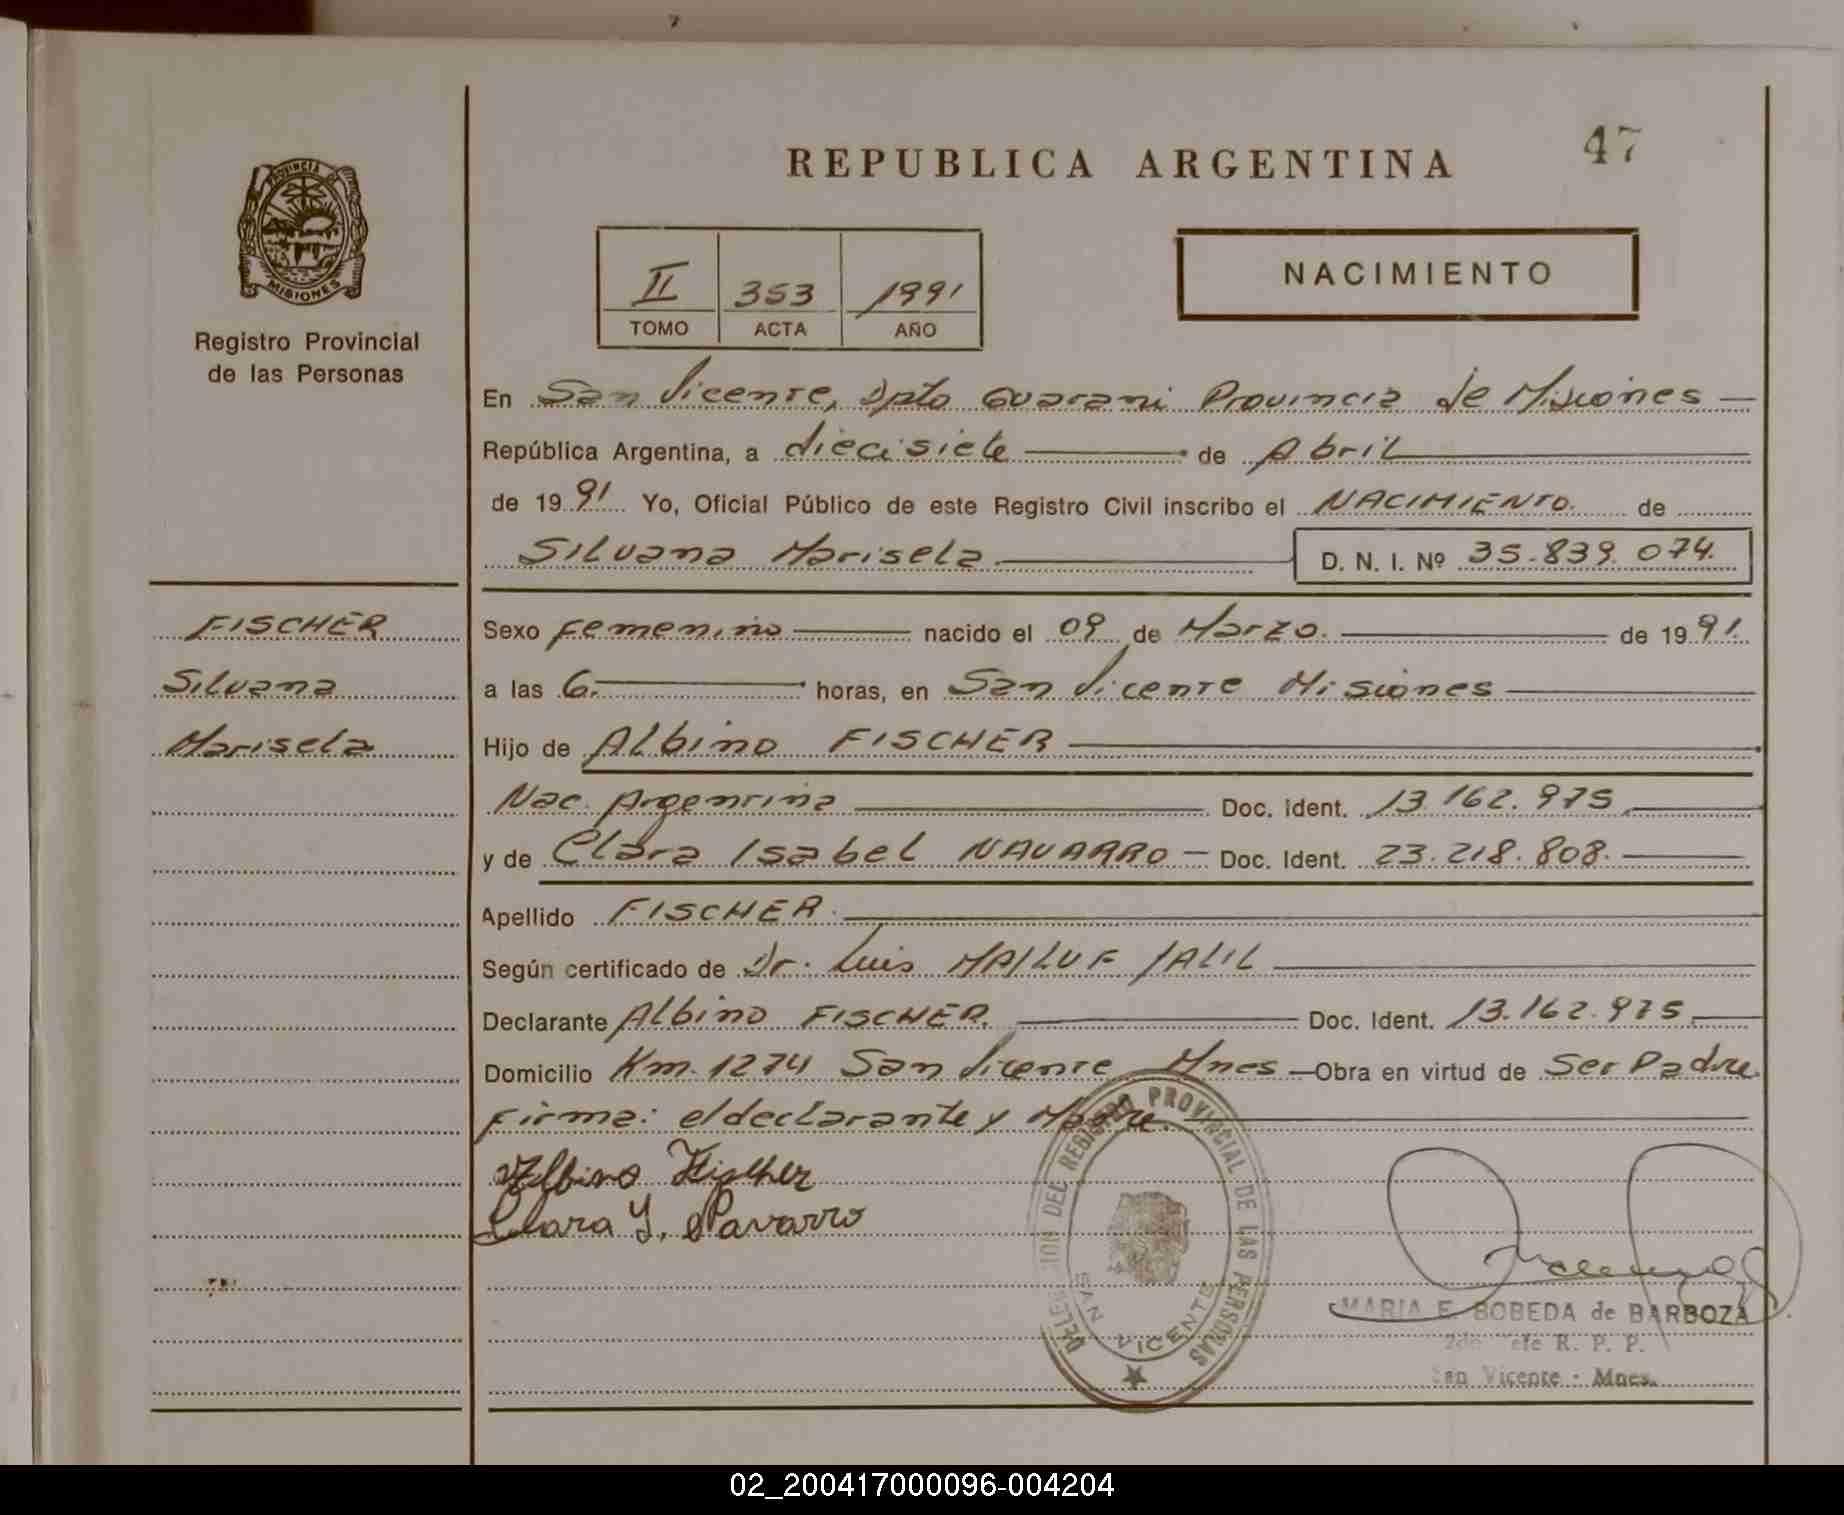 47
REPUBLICA ARGENTINA
PROVINCIA DE
MISIONES
Registro Provincial
de las Personas
II 353 1991
TOMO ACTA AÑO
NACIMIENTO
En San Vicente, Dpto Guarani Provincia de Misiones
República Argentina, a diecisiete de Abril
de 1991 Yo, Oficial Público de este Registro Civil inscribo el NACIMIENTO. de
Silvana Marisela D. N. I. Nº 35.839.074.
FISCHER
Silvana
Marisela
Sexo femenino nacido el 09 de Marzo. de 1991.
a las 6. horas, en San Vicente Misiones
Hijo de Albino FISCHER
Nac. Argentina Doc. Ident. 13.162.975
y de Clara Isabel NAVARRO Doc. Ident. 23.218.808.
Apellido FISCHER.
Según certificado de Dr. Luis MAILUF JALIL
Declarante Albino FISCHER. Doc. Ident. 13.162.975.
Domicilio Km. 1274 San Vicente Mnes Obra en virtud de Ser Padre.
Firma: el declarante y Madre.
Albino Fischer
Clara Y. Navarro
DEL REGISTRO PROVINCIAL DE LAS PERSONAS
SAN VICENTE
MARIA E. BOBEDA de BARBOZA
R. P. P.
San Vicente - Mnes.
02_200417000096-004204